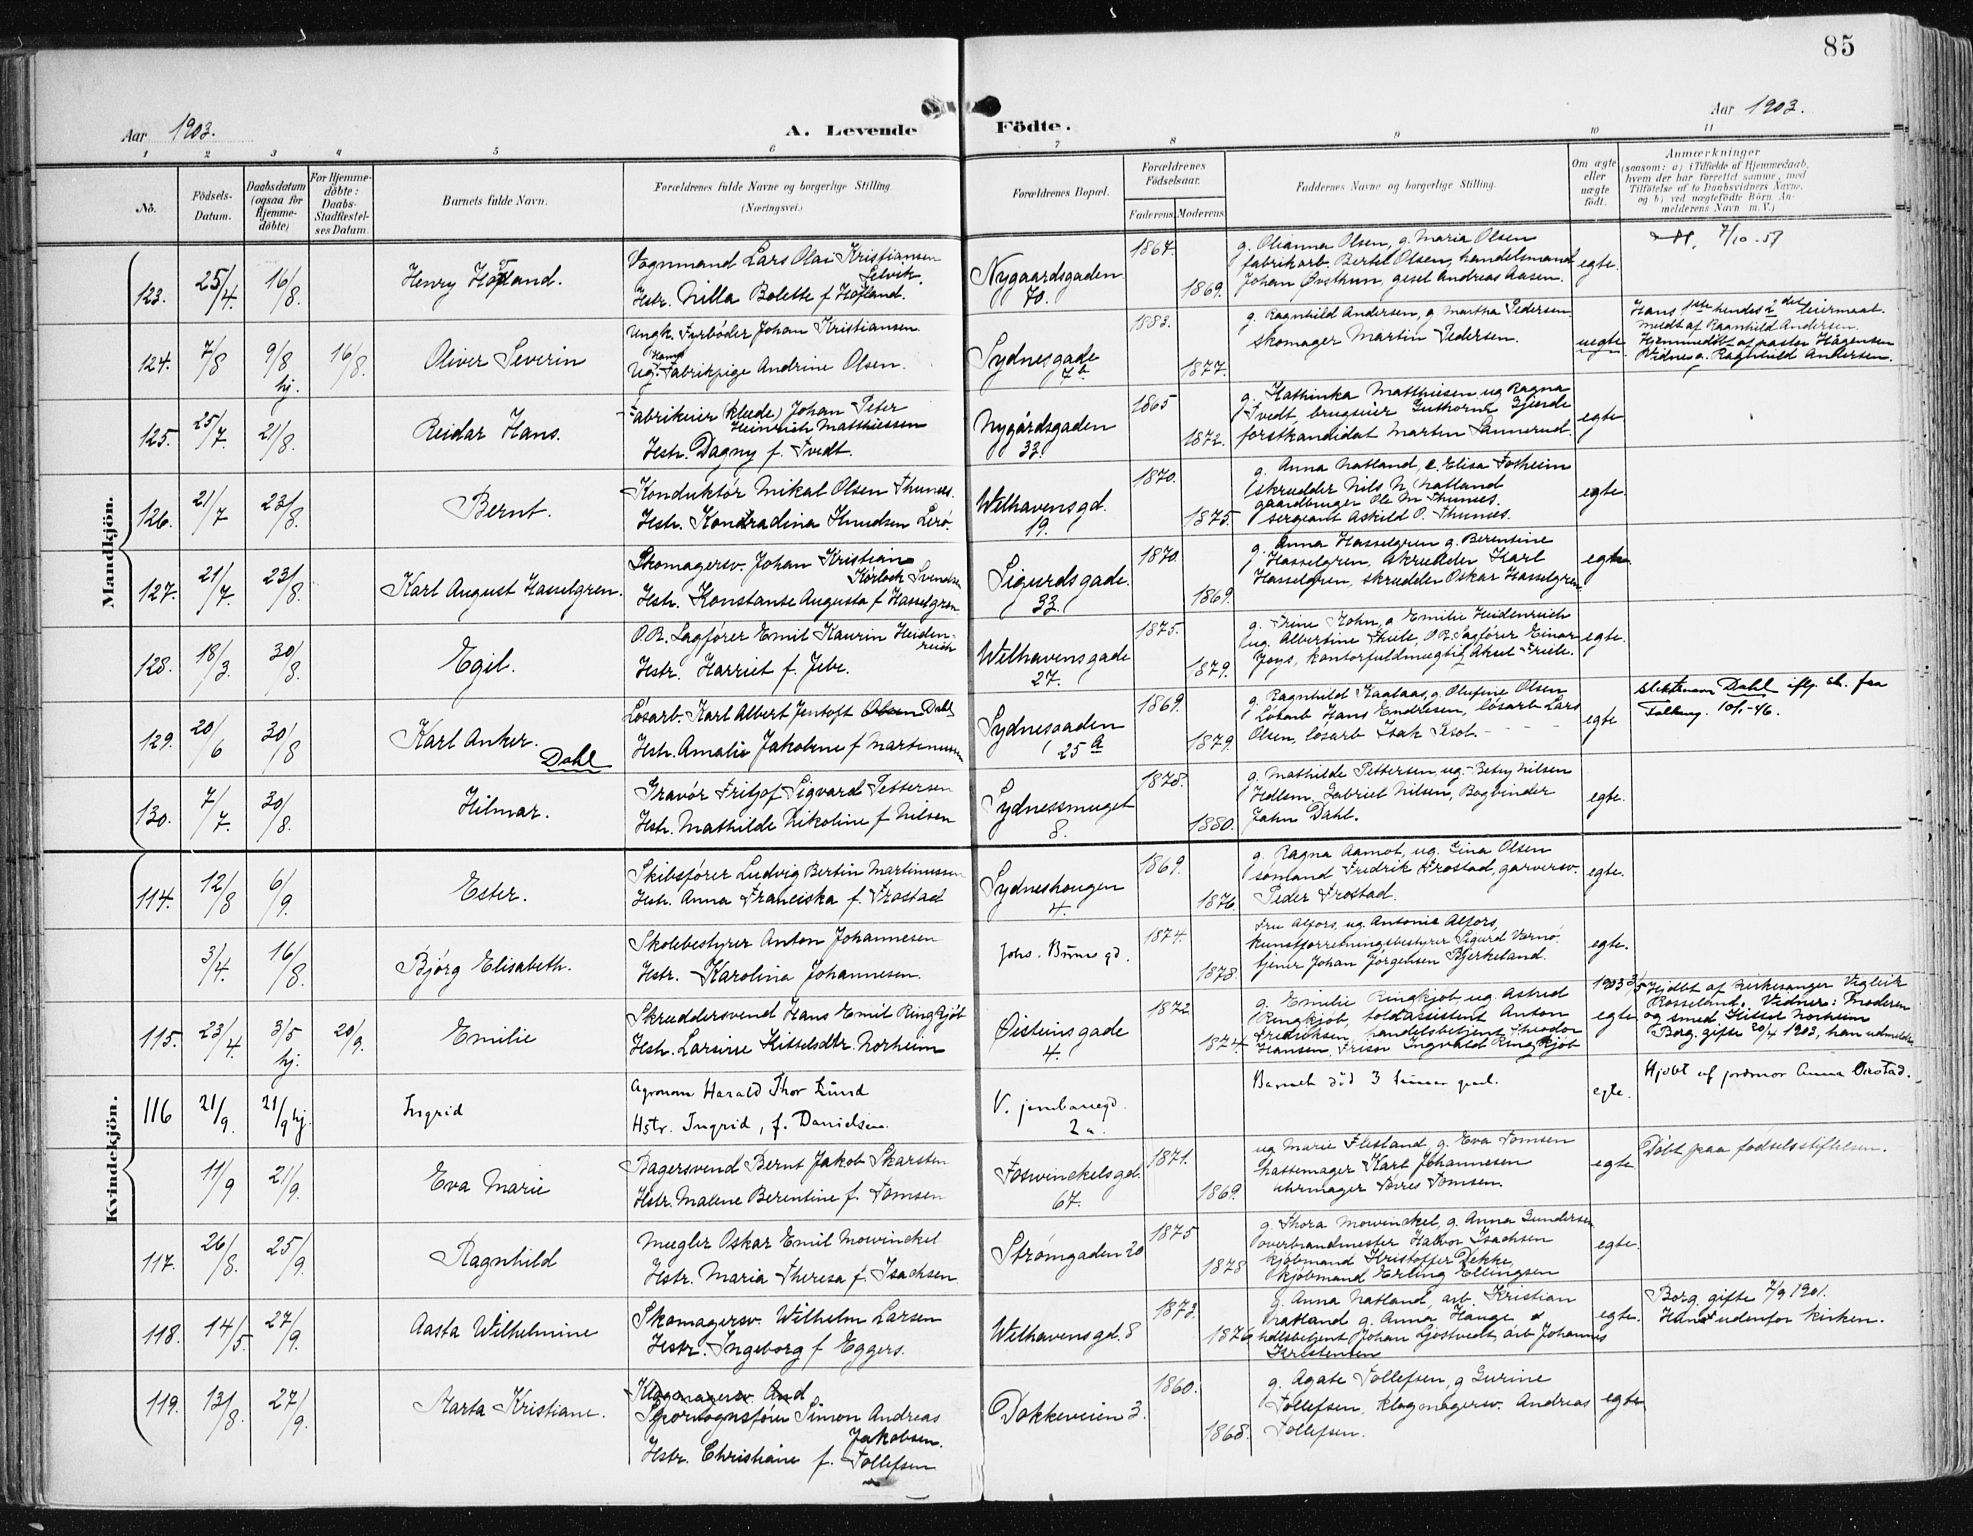 85
Aar 1903.
A. Levende Födte.
Aar 1903.
1 2 3 4 5 6 7 8 9 10 11
No.
Födsels-
Datum.
Daabsdatum
(ogsaa for
Hjemme-
döbte)
For Hjemme-
döbte:
Daabs-
Stadfæstel-
ses Datum.
Barnets fulde Navn.
Forældrenes fulde Navne og borgerlige Stilling.
(Næringsvei.)
Forældrenes Bopæl.
Forældrenes
Födselsaar.
Faderens. Moderens.
Faddernes Navne og borgerlige Stilling.
Om ægte
eller
uægte
födt.
Anmærkninger
(saasom: a) i Tilfælde af Hjemmedaab,
hvem der har forrettet samme, med
Tilföielse af to Daabsvidners Navne,
og b) ved uægtefödte Börn An-
melderens Navn m. V.)
Mandkjön.
123. 25/4. 16/8. Henry Hofland.
Vognmand Lars Olai Kristiansen
Selvik.
Hstr. Nilla Bolette f. Hofland.
Nygaardsgaden
70.
1864. 1869.
g. Olianna Olsen, g. Maria Olsen
fabrikarb. Bertel Olsen, handelsmand
Johan Øvsthun, gesel Andreas Aasen.
egte.
7/10-57
124. 7/8 9/8 hj. 16/8. Oliver Severin
Ungk. Fyrbøder Johan Kristiansen
Ug. Fabrikpige Andrine Olsen.
Sydnesgade
7b
1883. 1877.
g. Ragnhild Andersen, g Martha Pedersen
skomager Martin Pedersen.
uegte
Hans 1ste hendes 2det leiermaal.
meldt af Ragnhild Andersen.
Hjemmedøbt af pastor Hågensen
Vidne g. Ragnhild Andersen.
125. 25/7 21/8. Reidar Hans.
Fabrikeier (klæde) Johan Peter
Heinrich Matthiessen
Hstr. Dagny f. Tvedt.
Nygårdsgaden
33.
1865 1872.
g. Kathinka Matthiesen ug Ragna
Tvedt, brugseier Guthorm Gjerde
forstkandidat Martin Sannerud.
egte
126. 21/7 23/8. Bernt.
Konduktør Mikal Olsen Thunes.
Hstr. Konradina Knudsen Lerø.
Welhavensgd.
19.
1870. 1875.
g. Anna Natland, e. Elisa Fosheim
skrædder Nils N. Natland
gaardbruger Ole M Thunes.
sergeant Askild O. Thunes.
egte.
127. 21/7. 23/8. Karl August Hasselgren.
Skomagersv. Johan Kristian
Kørlock Svendsen
Hstr. Konstanse Augusta f Hasselgren
Sigurdsgade.
33.
1870. 1869.
g. Anna Hasselgren g. Berentine
Hasselgren, skrædder Karl
Hasselgren, skrædder Oskar Hasselgren
egte
128. 18/3 30/8. Egil.
O.R. Sagfører Emil Kaurin Heiden-
reich
Hstr. Harriet f. Jebe.
Welhavensgade
27.
1875. 1879.
g. Trine Kohn, g Emilie Heidenreich
ug. Albertine Friele, O.R. Sagfører Einar
Joys, kontorfuldmægtig Aksel Friele.
egte.
129. 20/6 30/8 Karl Anker.
Dahl
Løsarb. Karl Albert Jentoft Olsen Dahl
Hstr. Amalie Jakobine f Martinussen
Sydnesgaden
25 a
1869. 1879.
g. Ragnhild Kaalaas, g. Olufine Olsen
Løsarb Hans Endresen, løsarb Lars
Olsen, løsarb Isak
egte
slektsnavn Dahl iflg. sk. fra
10/1-46.
130. 7/7. 30/8. Hilmar.
Gravør Fritjof Sigvard Pettersen
Hstr. Mathilde Nikoline f Nilsen
Sydnessmuget
8.
1878. 1880.
g. Mathilde Pettersen, ug. Betsy Nilsen
Gabriel Nilsen, Bogbinder
John Dahl.
egte.
Kvindekjön.
114. 12/8 6/9. Ester.
Skibsfører Ludvig Bertin Martinussen
Hstr. Anna Franciska f. Frostad
Sydneshougen
4.
1869. 1876.
g. Ragna Aamot, ug. Gina Olsen
sømand Fredrik Frostad, garversv.
Peder Frostad.
egte.
3/4. 16/8. Bjørg Elisabeth.
Skolebestyrer Anton Johannesen
Hstr. Karolina Johannesen.
Johs. Bruns gd.
1874. 1878.
Fru Alfors, ug. Antonie Alfors,
kunstforretningsbestyrer Sigurd Vernø.
tjener Johan Jørgensen Bjerkeland.
egte.
115. 23/4. 3/5 hj. 20/9. Emilie
Skræddersvend Hans Emil Ringkjøb
Hstr. Larsine Kittelsdtr. Norheim
Øisteinsgade
4.
1872 1874.
g. Emilie Ringkjøb, ug. Astrid
Ringkjøb, toldassistent Anton
Fredriksen, handelsbetjent Theodor
Hansen, Frisør Ingvald Ringkjøb
egte
1903 3/5 Hjdbt af kirkesanger Viglik
Rosseland. Vidner: Moderen
og smed Kittel Norheim
Borg. gifte 20/4 1903, han udmeldt
116 21/9. 21/9 hj. Ingrid
Agronom Harald Thor Lund
Hstr. Ingrid, f. Danielsen.
V. jernbanegd.
2a.
Barnet død 3 timer gml.
egte.
Hjdbt af jordmor Anna Ørstad.
11/9 21/9. Eva Marie
Bagersvend Bernt Jakob Skarsten
Hstr. Malene Berentine f. Tomsen
Foswinckelsgd.
67.
1871. 1869.
ug Marie Flesland, g. Eva Tomsen
hattemager Karl Johannesen
uhrmager Tomsen.
egte
Døbt paa fødselsstiftelsen.
117. 26/8. 25/9. Ragnhild
Mægler Oskar Emil Mowinckel
Hstr. Maria Theresa f. Isachsen
Strømgaden 20
1875 1878
g. Thora Mowinckel, g. Anna Gundersen
overbrandmester Halvor Isachsen
kjøbmand Kristoffer Dekke,
kjøbmand Erling Ellingsen
egte.
118. 14/5. 27/9. Aasta Wilhelmine
Skomagersv. Wilhelm Larsen
Hstr. Ingeborg f Eggers.
Welhavensgd. 8
1873. 1876
g. Anna Natland, arb. Kristian
Natland g. Anna Hauge
hdlsbetjent Johan Ljostvedt, arb Johannes
Kristensen
egte.
Borg. gifte 7/9 1901.
Han udenfor kirken.
119. 13/8. 27/9. Marta Kristiane.
Klogmagersv. And
Sporvognsfører Simon Andreas
Jakobsen.
Hstr. Christiane f. Tollefsen
Dokkeveien 3.
1860. 1868.
g. Agate Tollefsen, g Gurine
Tollefsen, klogmagersv. Andreas
Tollefsen.
egte